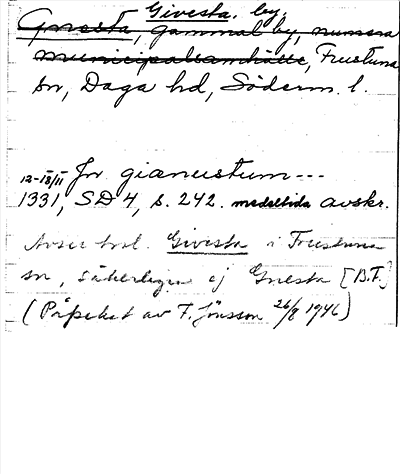 Givesta, by,
Gnesta, gammal by, numera
municipalsamhälle, Frustuna
sn, Daga hd, Söderm. l.
12-18/11 Jn gianustum---
1331, SD 4, s. 242. medeltida avskr.
Avser trol. Givesta i Frustuna
sn, säkerligen ej Gnesta [B.F.]
(Påpekat av F. Jönsson 26/8 1946)